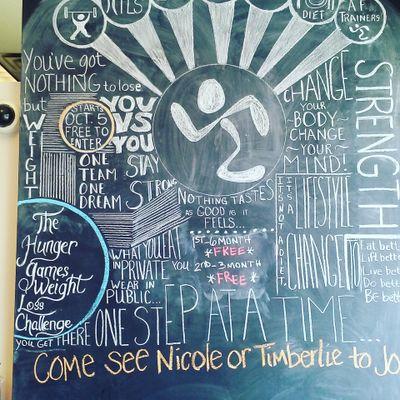 DIET
AF
TRAINERS
You've got
NOTHING to lose
but
WEIGHT
STARTS
OCT. 5
FREE TO
ENTER
YOU
VS
YOU
ONE
TEAM
ONE
DREAM
STAY
STRONG
CHANGE
YOUR
BODY
CHANGE
YOUR
MIND!
STRENGTH
NOTHING TASTES
AS GOOD IS IT
FEELS...
IT'S NOT A DIET
IT'S A
LIFESTYLE
CHANGE
1ST - 6 MONTH
*FREE*
2ND - 3 MONTH
*FREE*
The
Hunger
Games
Weight
Loss
Challenge
WHAT YOU EAT
IN PRIVATE YOU
WEAR IN
PUBLIC...
Eat bett
Lift bette
Live be
Do bette
Be bet
YOU GET THERE ONE STEP AT A TIME...
COME SEE Nicole or Timberlie to Jo